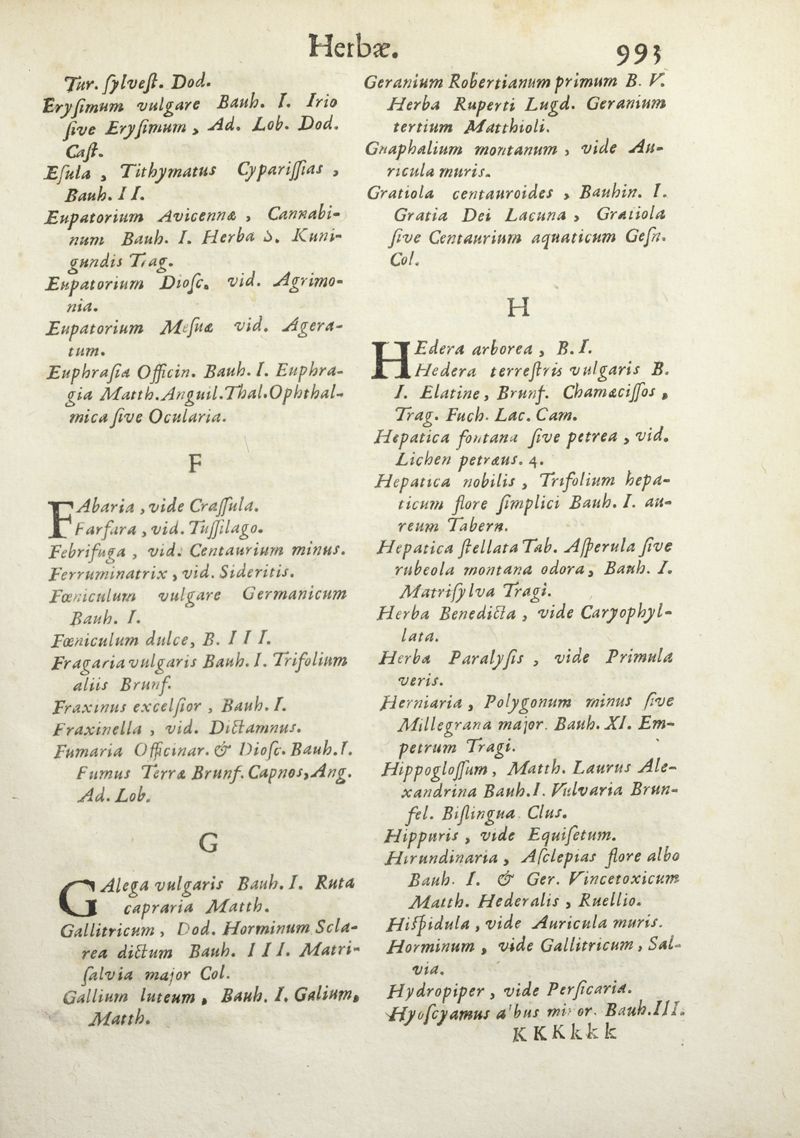 Herbæ.
993
Tur. ſylveſt. Dod.
Eryſimum vulgare Bauh. I. Irio
ſive Eryſimum, Ad. Lob. Dod.
Caſt.
Eſula, Tithymatus Cypariſſias,
Bauh. I I.
Eupatorium Avicennæ, Cannabi-
num Bauh. I. Herba S. Kuni-
gundis Trag.
Eupatorium Dioſc. vid. Agrimo-
nia.
Eupatorium Meſuæ vid. Agera-
tum.
Euphraſia Officin. Bauh. I. Euphra-
gia Matth. Anguil. Thal. Ophthal-
mica ſive Ocularia.
F
FAbaria, vide Craſſula.
Farfara, vid. Tuſſilago.
Febrifuga, vid. Centaurium minus.
Ferruminatrix, vid. Sideritis.
Fœniculum vulgare Germanicum
Bauh. I.
Fœniculum dulce, B. I I I.
Fragaria vulgaris Bauh. I. Trifolium
aliis Brunf.
Fraxinus excelſior, Bauh. I.
Fraxinella, vid. Dictamnus.
Fumaria Officinar. & Dioſc. Bauh. I.
Fumus Terræ Brunf. Capnos, Ang.
Ad. Lob.
G
GAlega vulgaris Bauh. I. Ruta
capraria Matth.
Gallitricum, Dod. Horminum Scla-
rea dictum Bauh. I I I. Matri-
ſalvia major Col.
Gallium luteum, Bauh. I. Galium,
Matth.
Geranium Robertianum primum B. V.
Herba Ruperti Lugd. Geranium
tertium Matthioli.
Gnaphalium montanum, vide Au-
ricula muris.
Gratiola centauroides, Bauhin. I.
Gratia Dei Lacuna, Gratiola
ſive Centaurium aquaticum Geſn.
Col.
H
HEdera arborea, B. I.
Hedera terreſtris vulgaris B.
I. Elatine, Brunf. Chamæciſſos,
Trag. Fuch. Lac. Cam.
Hepatica fontana ſive petrea, vid.
Lichen petræus. 4.
Hepatica nobilis, Trifolium hepa-
ticum flore ſimplici Bauh. I. au-
reum Tabern.
Hepatica ſtellata Tab. Aſperula ſive
rubeola montana odora, Bauh. I.
Matriſylva Tragi.
Herba Benedicta, vide Caryophyl-
lata.
Herba Paralyſis, vide Primula
veris.
Herniaria, Polygonum minus ſive
Millegrana major. Bauh. XI. Em-
petrum Tragi.
Hippogloſſum, Matth. Laurus Ale-
xandrina Bauh. I. Vulvaria Brun-
fel. Biſlingua Clus.
Hippuris, vide Equiſetum.
Hirundinaria, Aſclepias flore albo
Bauh. I. & Ger. Vincetoxicum
Matth. Hederalis, Ruellio.
Hiſpidula, vide Auricula muris.
Horminum, vide Gallitricum, Sal-
via.
Hydropiper, vide Perſicaria.
Hyoſcyamus albus minor. Bauh. III.
K K K k k k